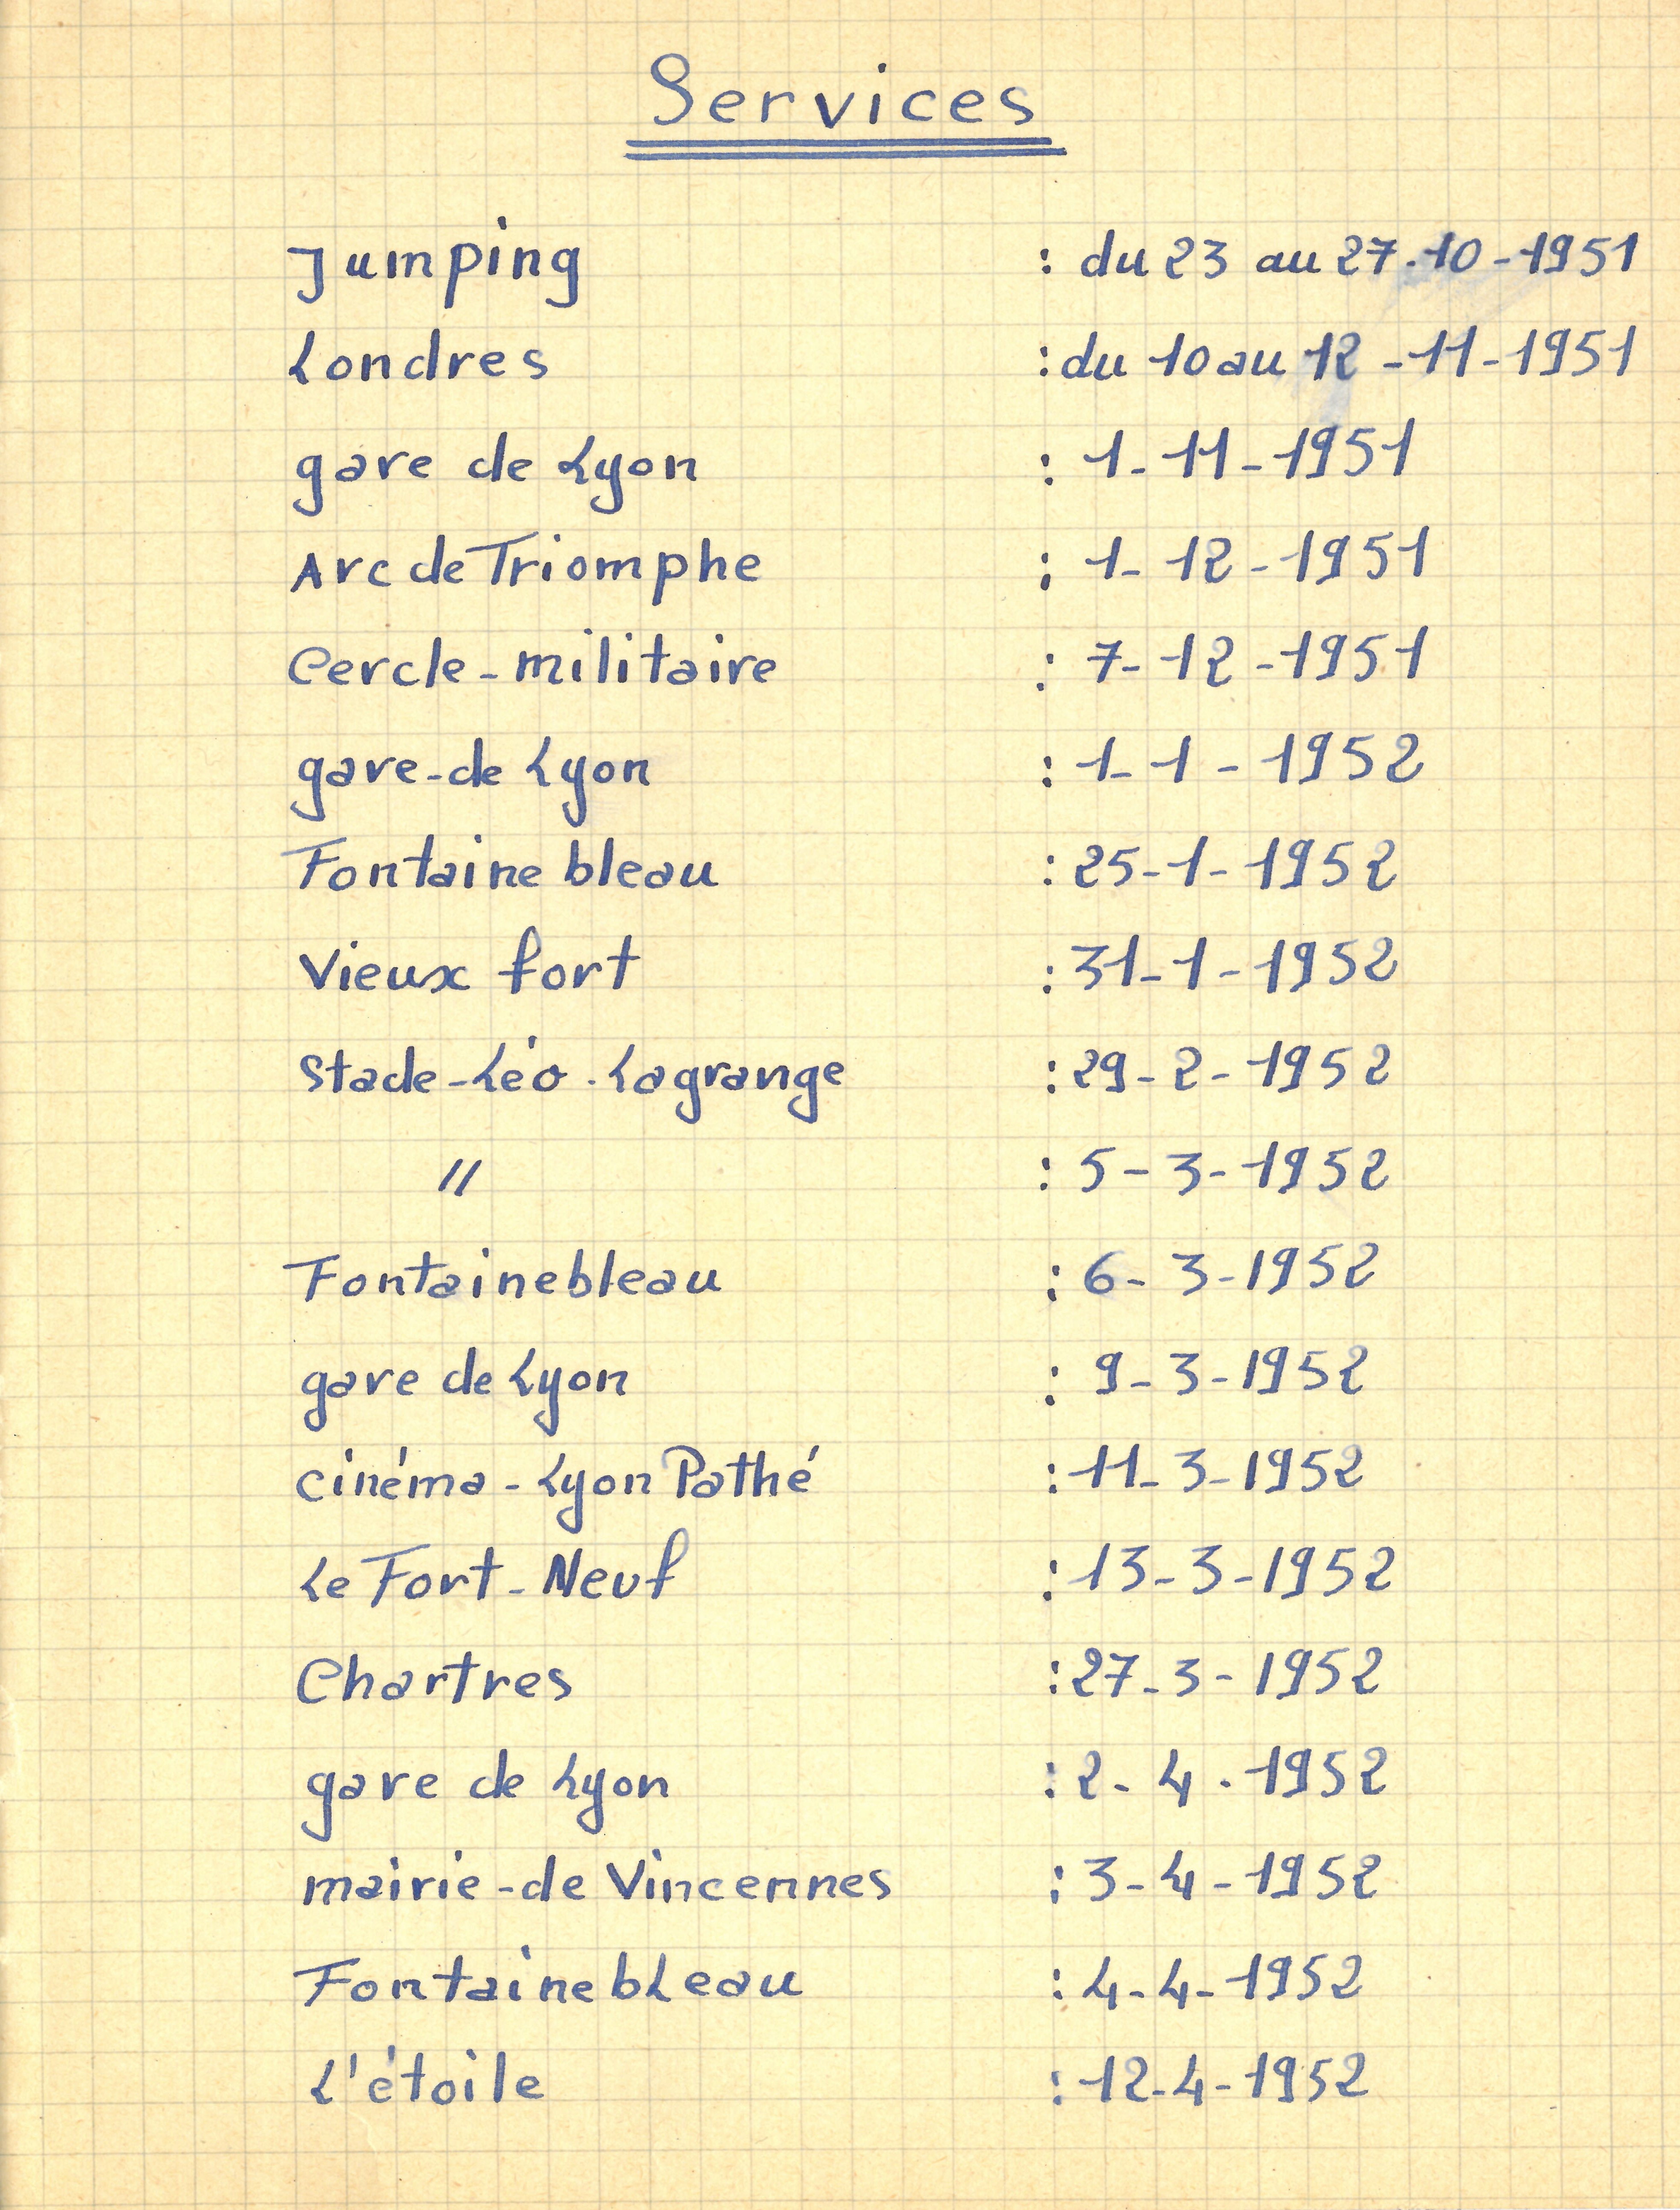 Services
Jumping : du 23 au 27.10-1951
Londres : du 10 au 12-11-1951
gare de Lyon : 1-11-1951
Arc de Triomphe : 1-12-1951
Cercle-militaire : 7-12-1951
gare-de Lyon : 1-1-1952
Fontainebleau : 25-1-1952
Vieux fort : 31-1-1952
Stade-Léo.Lagrange : 29-2-1952
〃 : 5-3-1952
Fontainebleau : 6-3-1952
gare de Lyon : 9-3-1952
cinéma-Lyon Pathé : 11-3-1952
Le Fort-Neuf : 13-3-1952
Chartres : 27-3-1952
gare de Lyon : 2-4.1952
mairie-de Vincennes : 3-4-1952
FontainebLeau : 4-4-1952
L'étoile : 12-4-1952